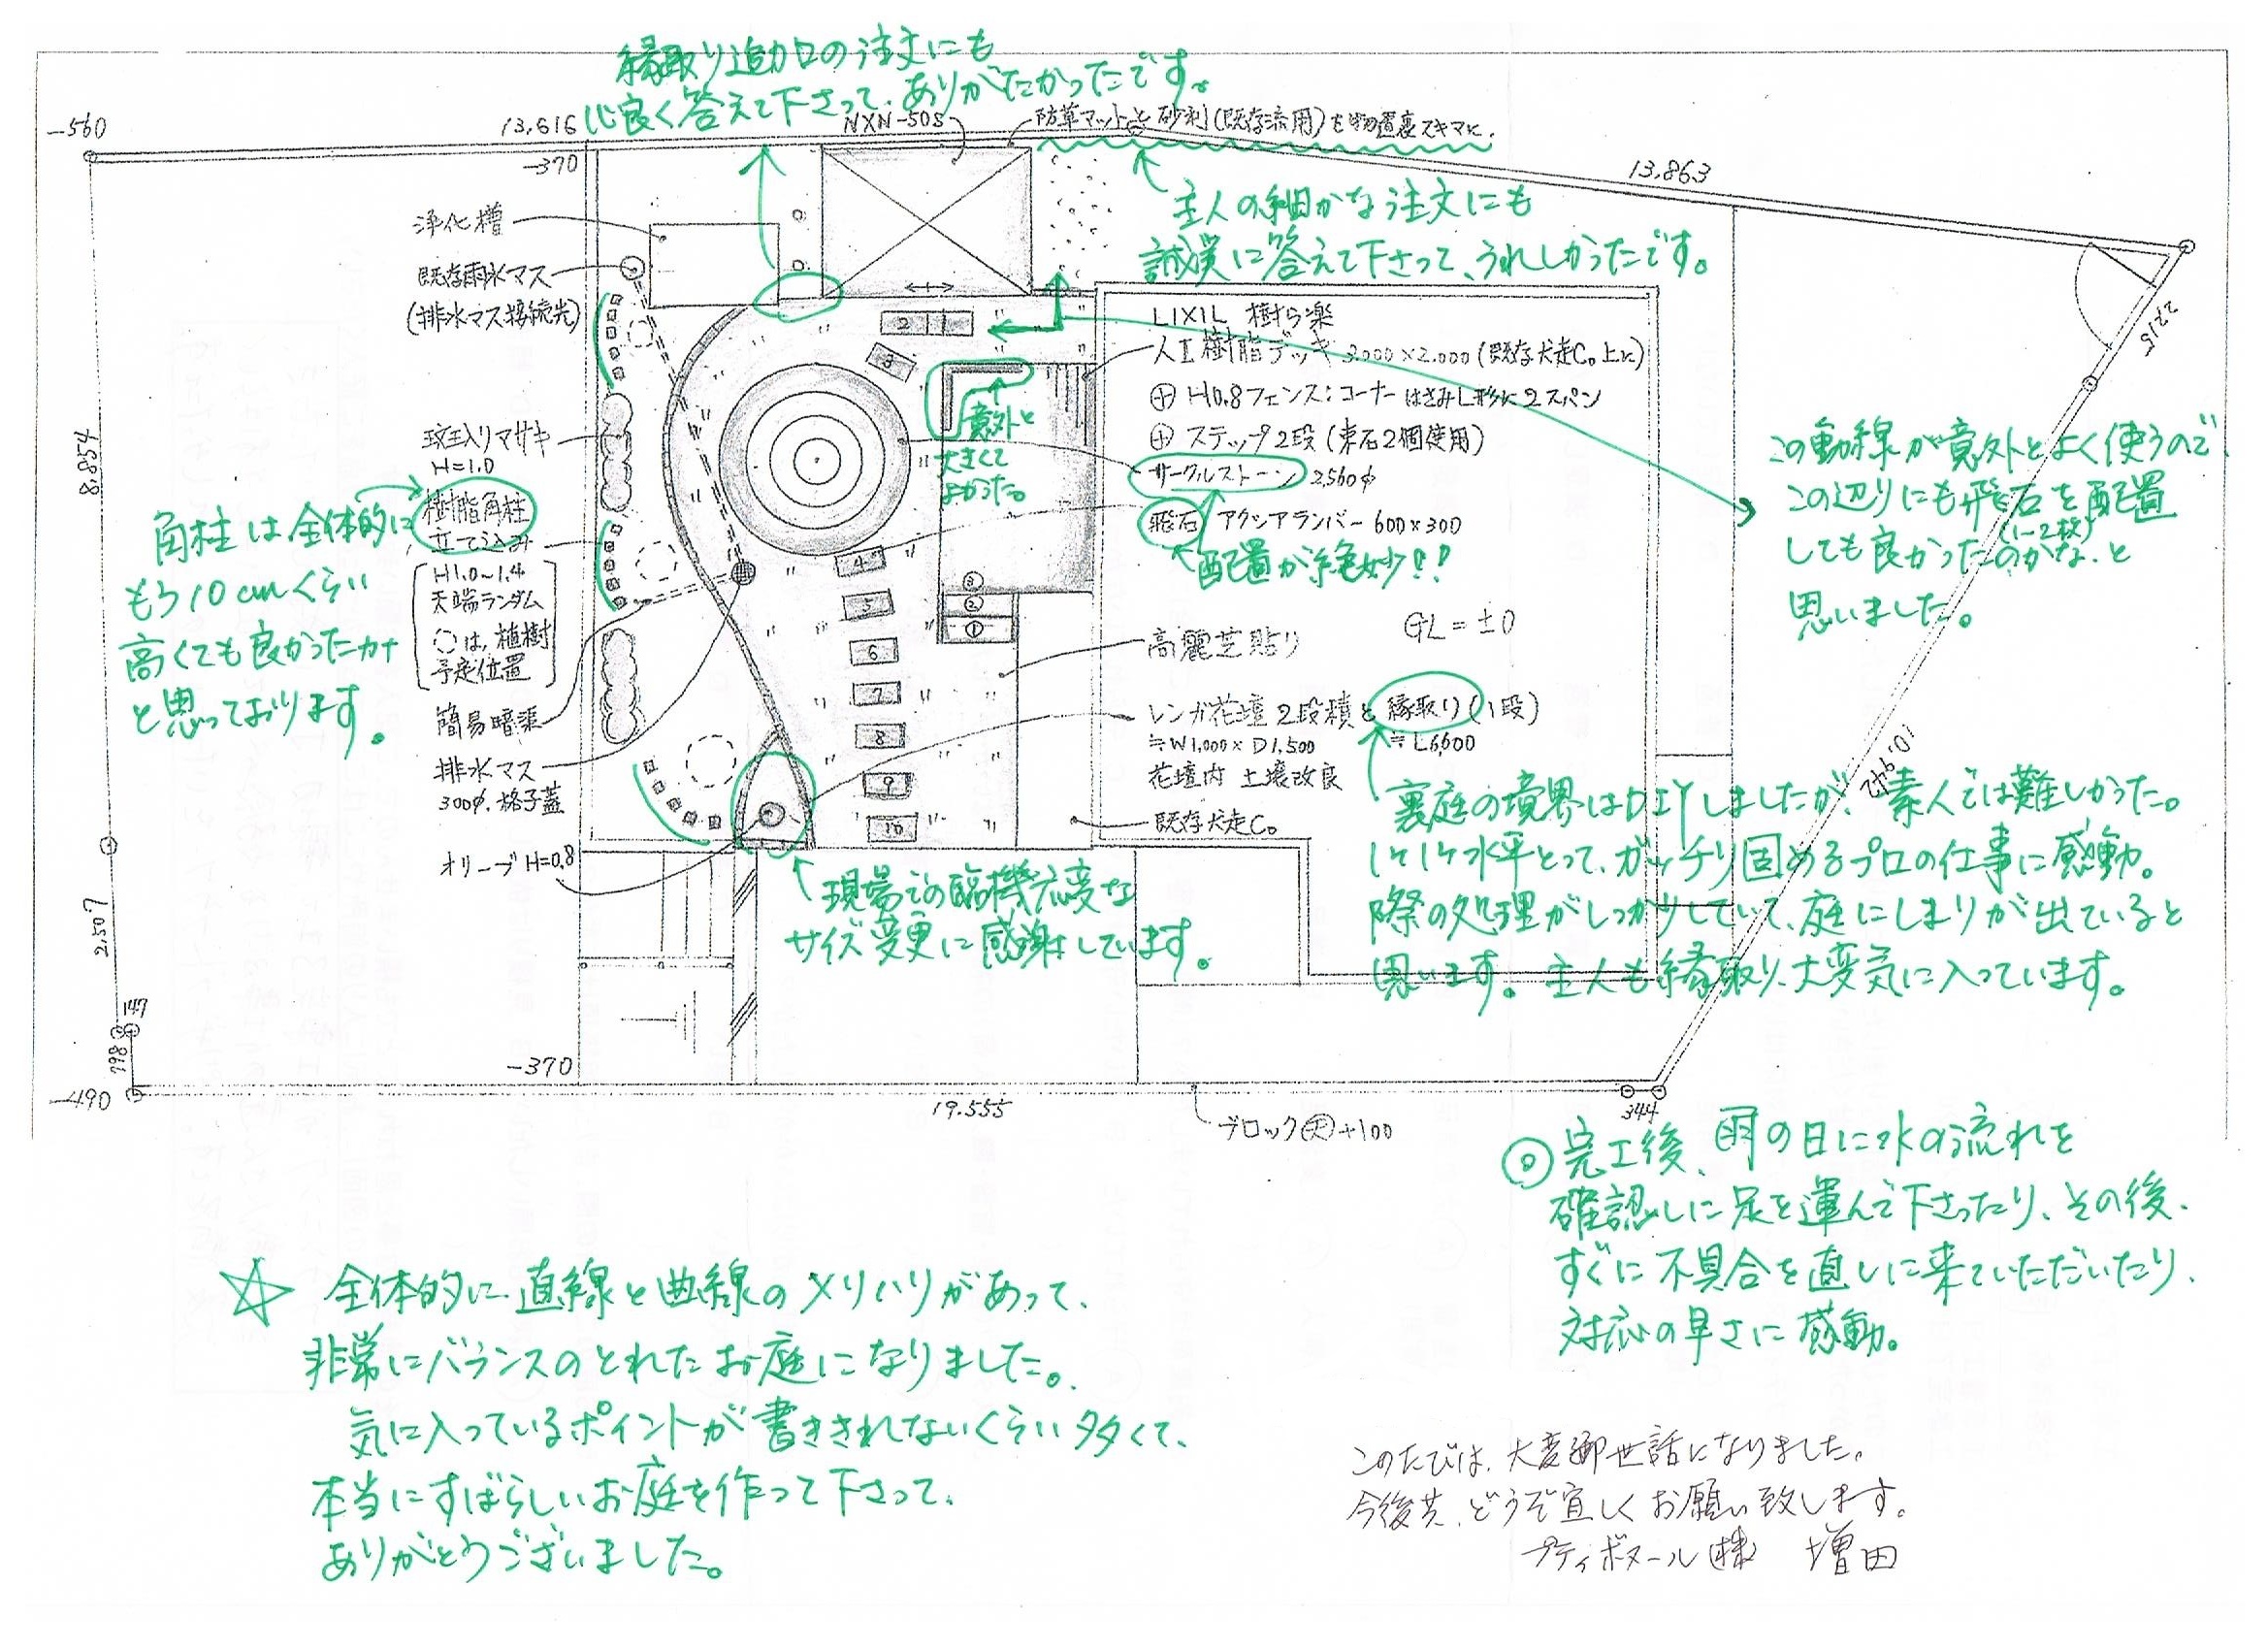 縁取り追加の注文にも
心良く答えて下さって、ありがたかったです。
-560
13,616
NXN-50S
防草マットと砂利(既存流用)を物置裏スキマに.
-370
13,863
主人の細かな注文にも
誠実に答えて下さって、うれしかったです。
浄化槽
既存雨水マス
(排水マス接続先)
斑入りマサキ
H=1.0
樹脂角柱
立て込み
H1.0~1.4
天端ランダム
◌は,植樹
予定位置
角柱は全体的に
もう10cmくらい
高くても良かったカナ
と思っております。
簡易暗渠
排水マス
300φ.格子蓋
オリーブ H=0.8
8.854
2.507
147
798
-490
-370
2 1
3
4
5
6
7
8
9
10
意外と
大きくて
よかった。
③
②
①
LIXIL 樹ら楽
人工樹脂デッキ 3.000×2.000(既存犬走Co上に)
⊕ H0.8フェンス:コーナーはさみL形に2スパン
⊕ ステップ2段(束石2個使用)
サークルストーン 2,560φ
飛石 アクシアランバー 600×300
配置が絶妙!!
GL=±0
高麗芝貼り
レンガ花壇2段積と縁取り(1段)
≒W1,000×D1,500
≒L6,600
花壇内 土壌改良
既存犬走Co
この動線が意外とよく使うので、
この辺りにも飛石を配置
(1~2枚)
しても良かったのかな、と
思いました。
2,215
10,942
裏庭の境界はDIYしましたが、素人では難しかった。
1ケ1ケ水平とって、ガッチリ固めるプロの仕事に感動。
際の処理がしっかりしていて、庭にしまりが出ていると
思います。主人も縁取り、大変気に入っています。
現場での臨機応変な
サイズ変更に感謝しています。
19.555
ブロック天+100
344
◎完工後、雨の日に水の流れを
確認しに足を運んで下さったり、その後、
すぐに不具合を直しに来ていただいたり、
対応の早さに感動。
☆ 全体的に直線と曲線のメリハリがあって、
非常にバランスのとれたお庭になりました。
気に入っているポイントが書ききれないくらい多くて、
本当にすばらしいお庭を作って下さって、
ありがとうございました。
このたびは、大変御世話になりました。
今後共、どうぞ宜しくお願い致します。
プティボヌール(株) 増田